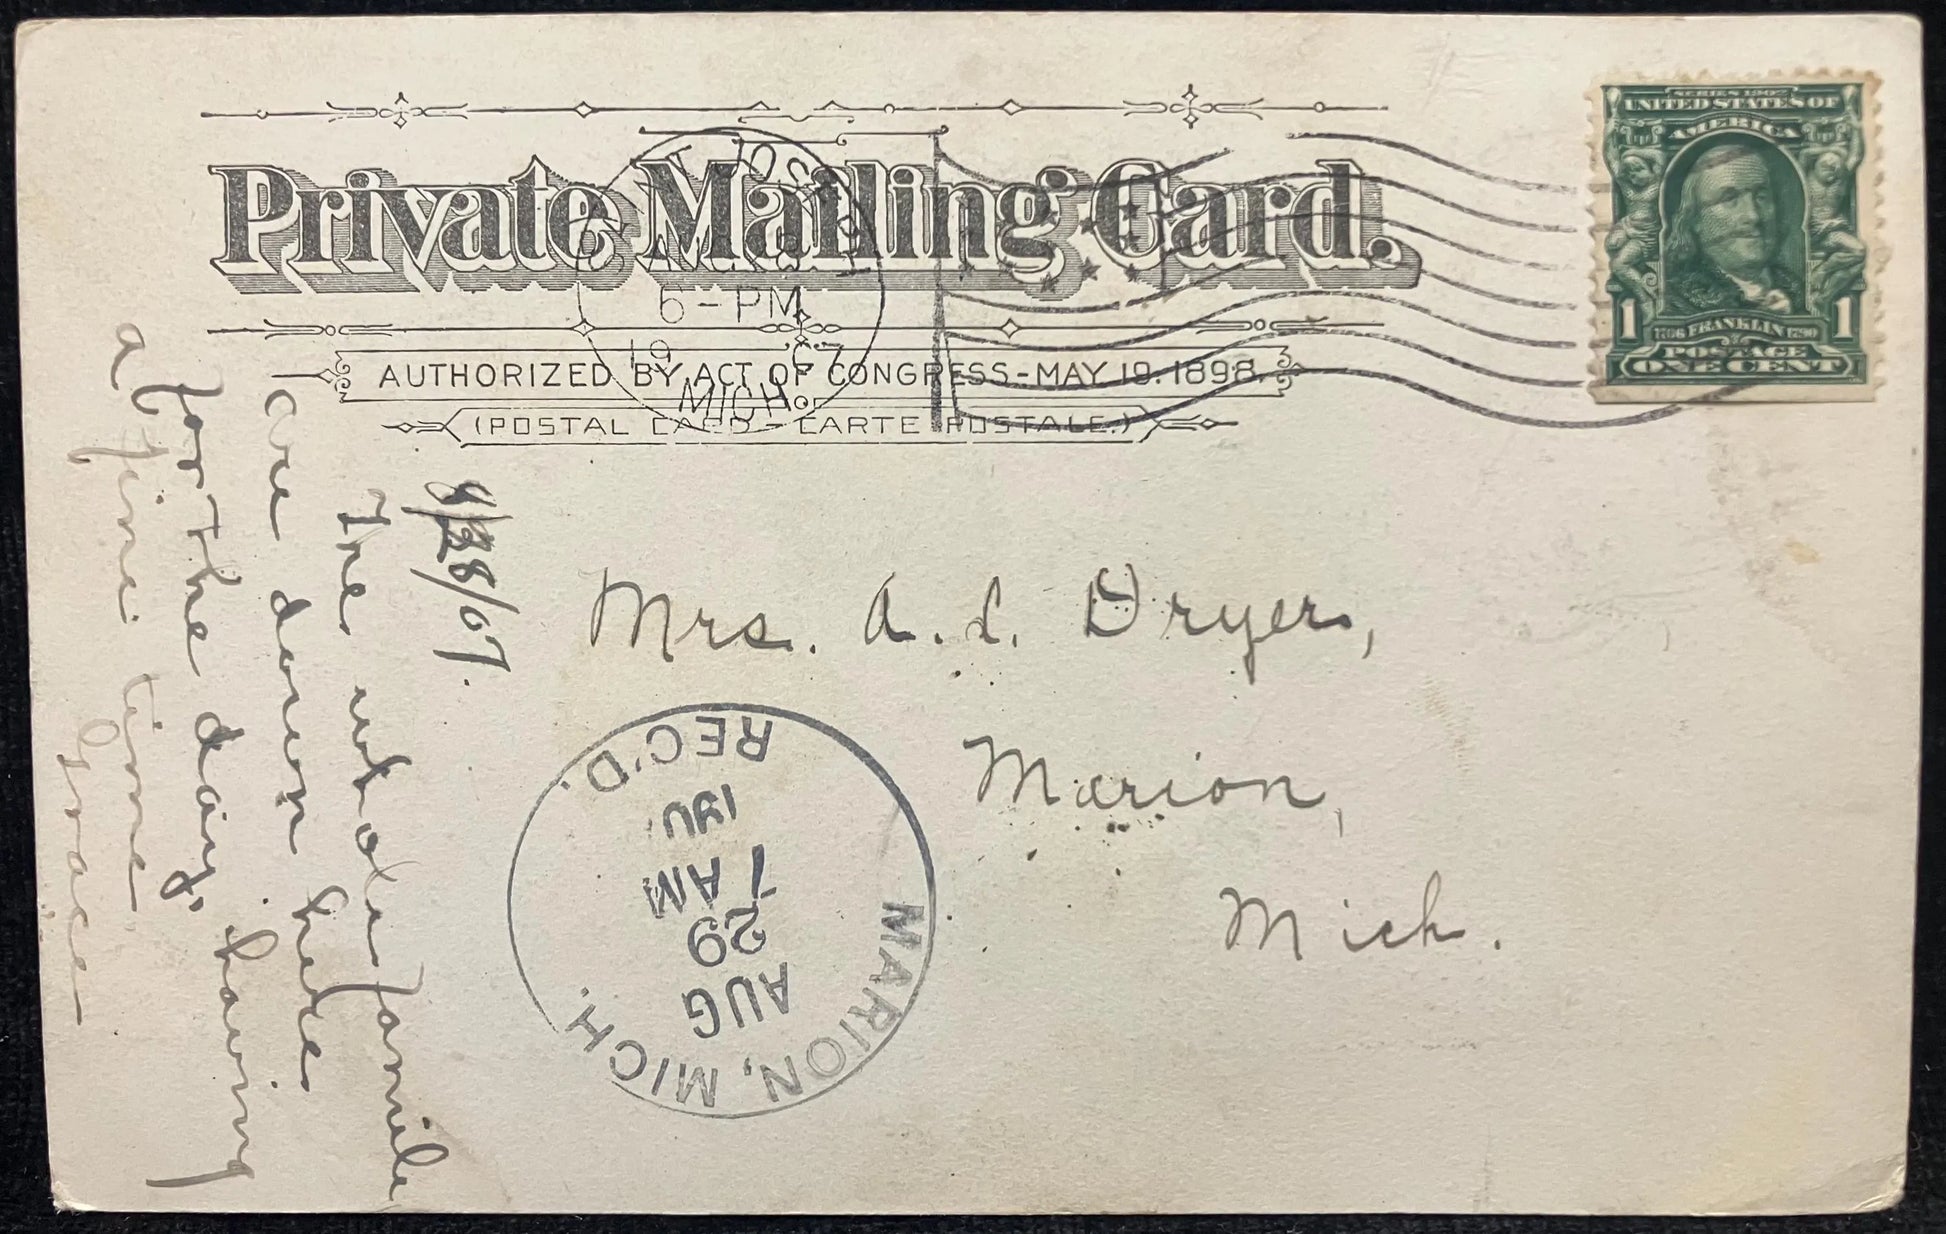 Private Mailing Card.
AUTHORIZED BY ACT OF CONGRESS-MAY 19. 1898.
(POSTAL CARD - CARTE POSTALE.)
ST. JOSEPH
AUG 28
6-PM
19 07
MICH.
SERIES 1902
UNITED STATES OF
AMERICA
1 1706 FRANKLIN 1790 1
POSTAGE
ONE CENT
Mrs. A. L. Dryer,
Marion,
Mich.
MARION, MICH.
AUG
29
7 AM
190
REC'D.
8/28/07.
The whole family
are down here
for the day, having
a fine time.
Grace